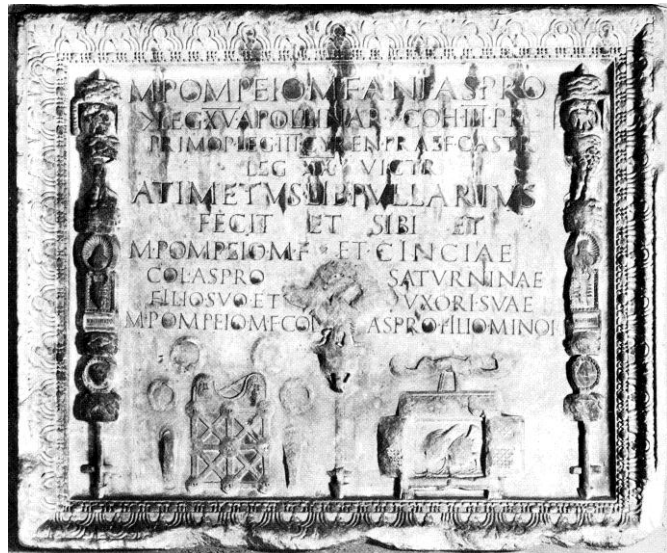 M·POMPEIO·M·F·ANI·ASPRO
>·LEG·X̅V̅·APOLLINAR·>·COH·I̅I̅I̅·PR
PRIMOP·LEG·I̅I̅I̅·CYREN·PRAEF·CASTR
LEG·X̅X̅·VICTR
ATIMETVS·LIB·PVLLARIVS
FECIT ET SIBI ET
M·POMPEIO·M·F· ET·CINCIAE
COL·ASPRO SATVRNINAE
FILIO·SVO·ET VXORI·SVAE
M·POMPEIO·M·F·COL ASPRO·FILIO·MINORI